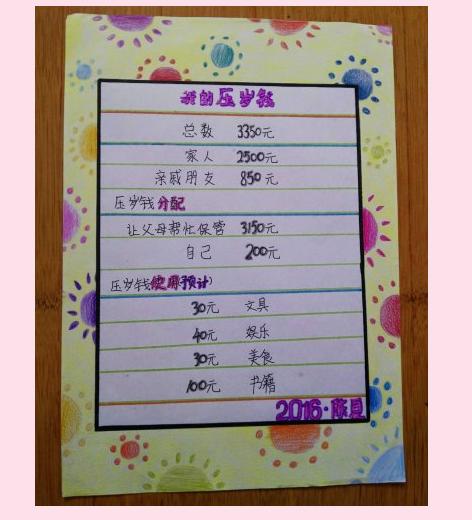 我的压岁钱
总数 3350元
家人 2500元
亲戚朋友 850元
压岁钱分配
让父母帮忙保管 3150元
自己 200元
压岁钱使用预计
30元 文具
40元 娱乐
30元 美食
100元 书籍
2016·陈